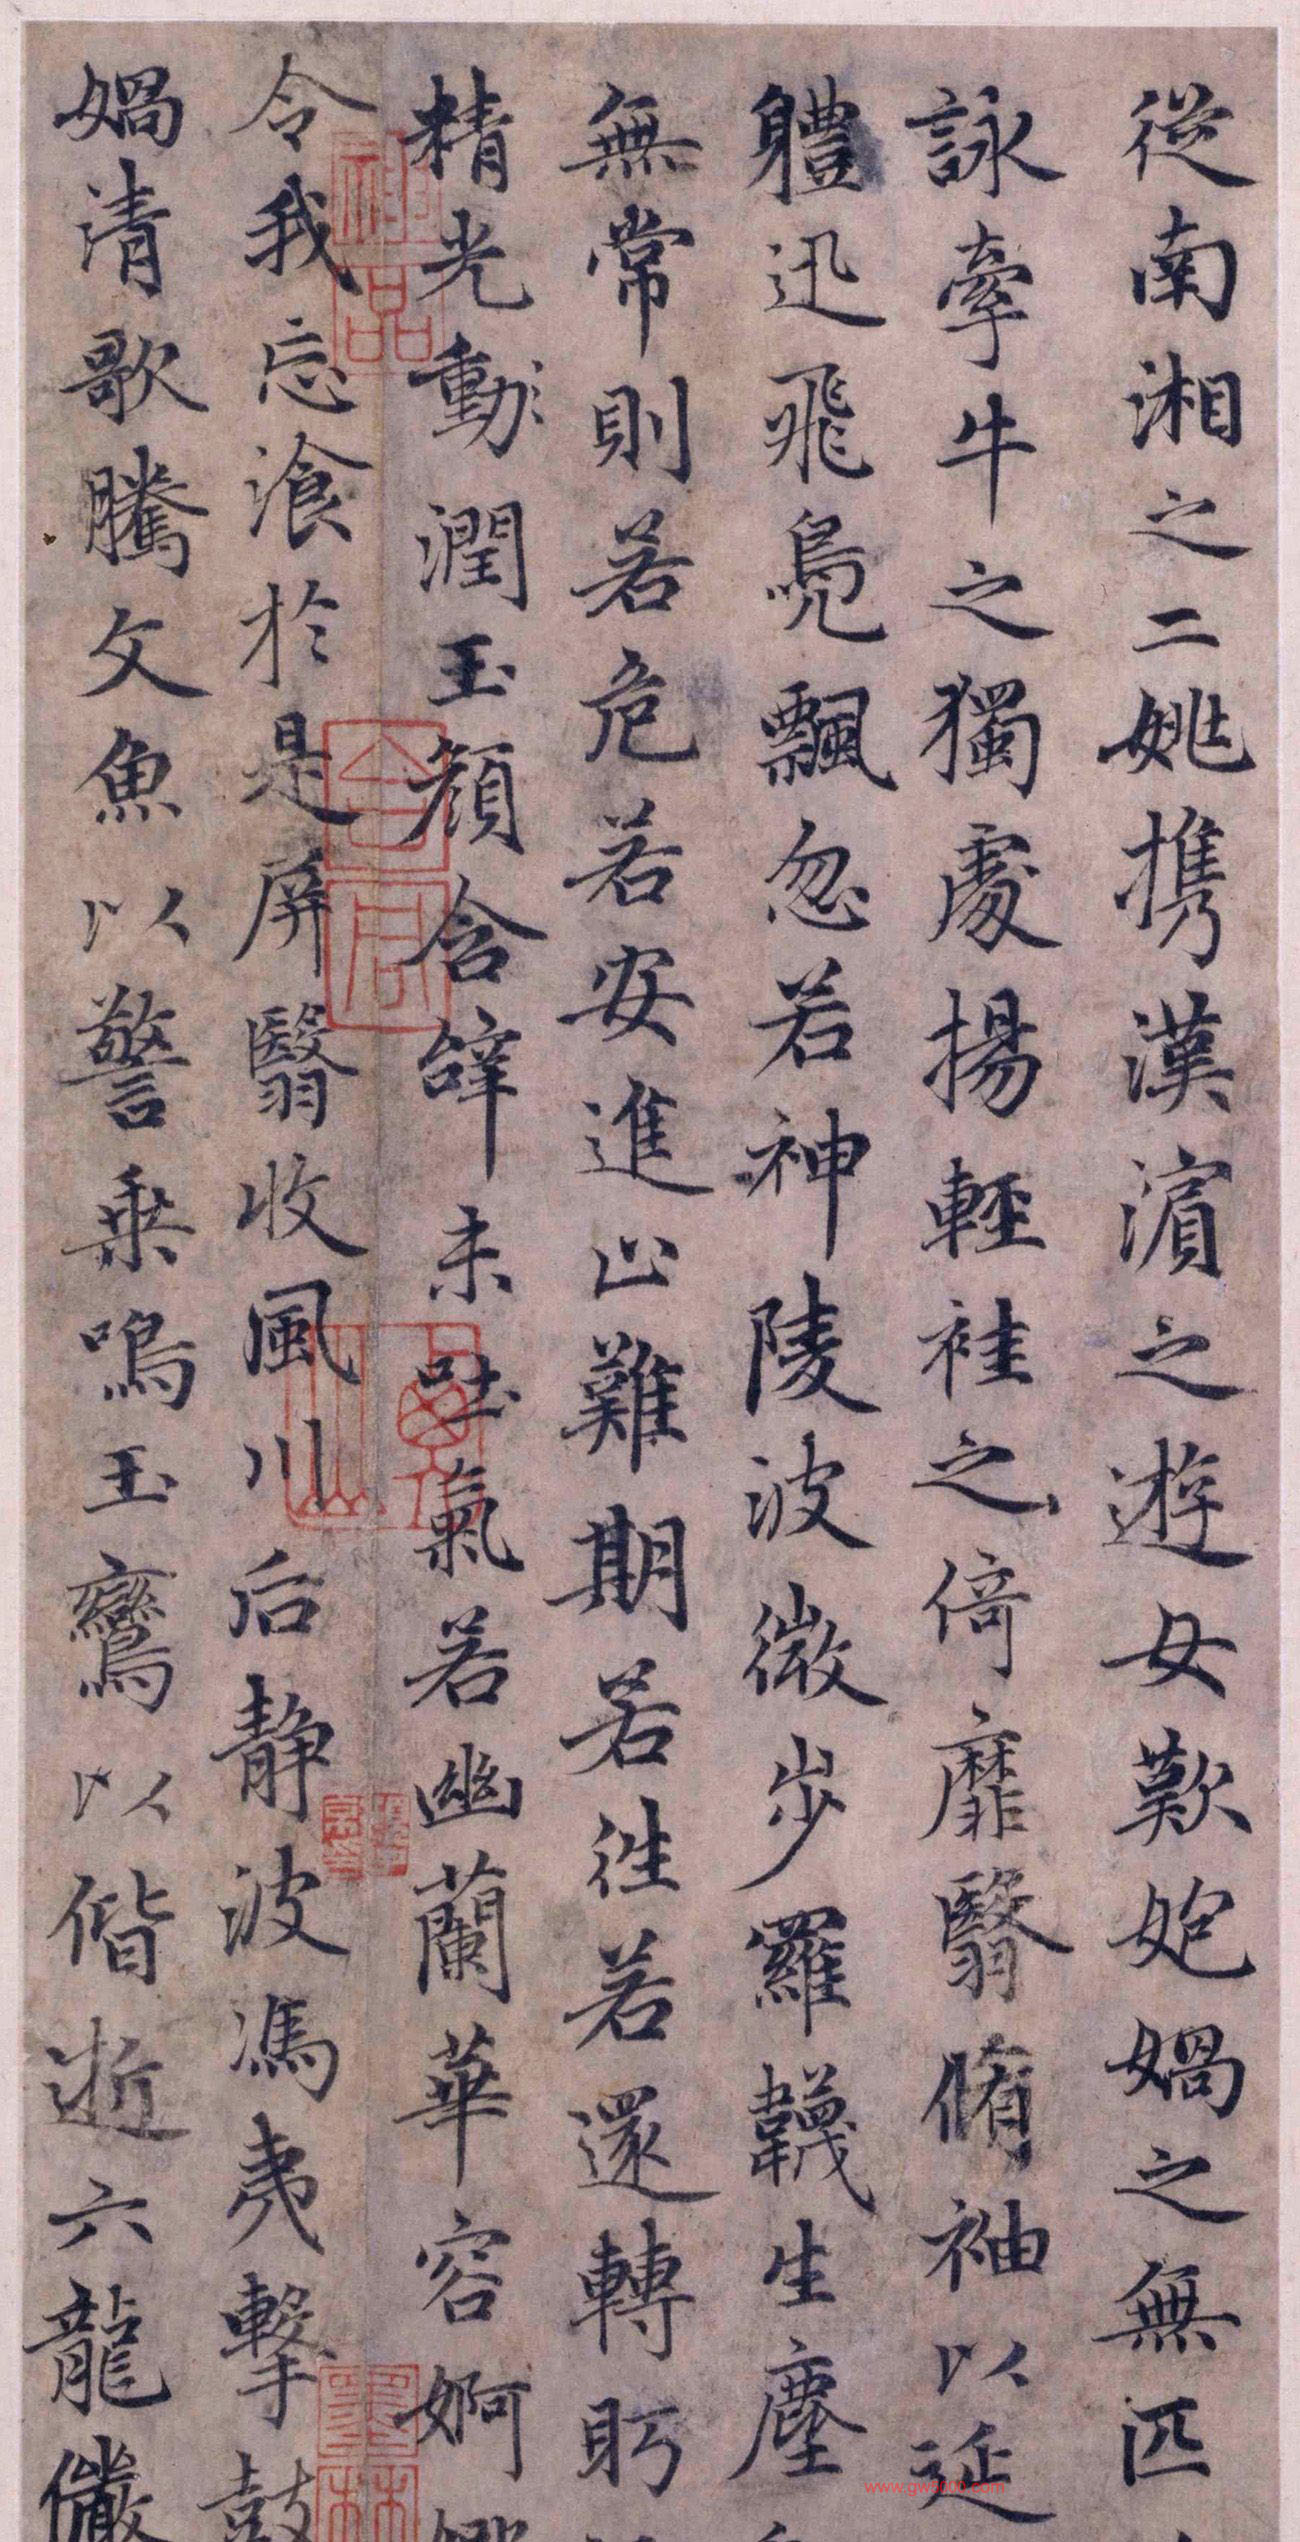 從南湘之二姚携漢濵之遊女歎姯媧之無匹
詠牽牛之獨處揚輕袿之倚靡翳脩袖以延
軆迅飛鳧飄忽若神陵波微步羅韈生塵
無常則若危若安進止難期若往若還轉眄
精光動潤玉顔含辝未吐氣若幽蘭華容婀
令我忘飡於是屏翳收風川后静波馮夷擊鼓
媧清歌騰文魚以警乗鳴玉鸞以偕逝六龍儼
www.gw5000.com